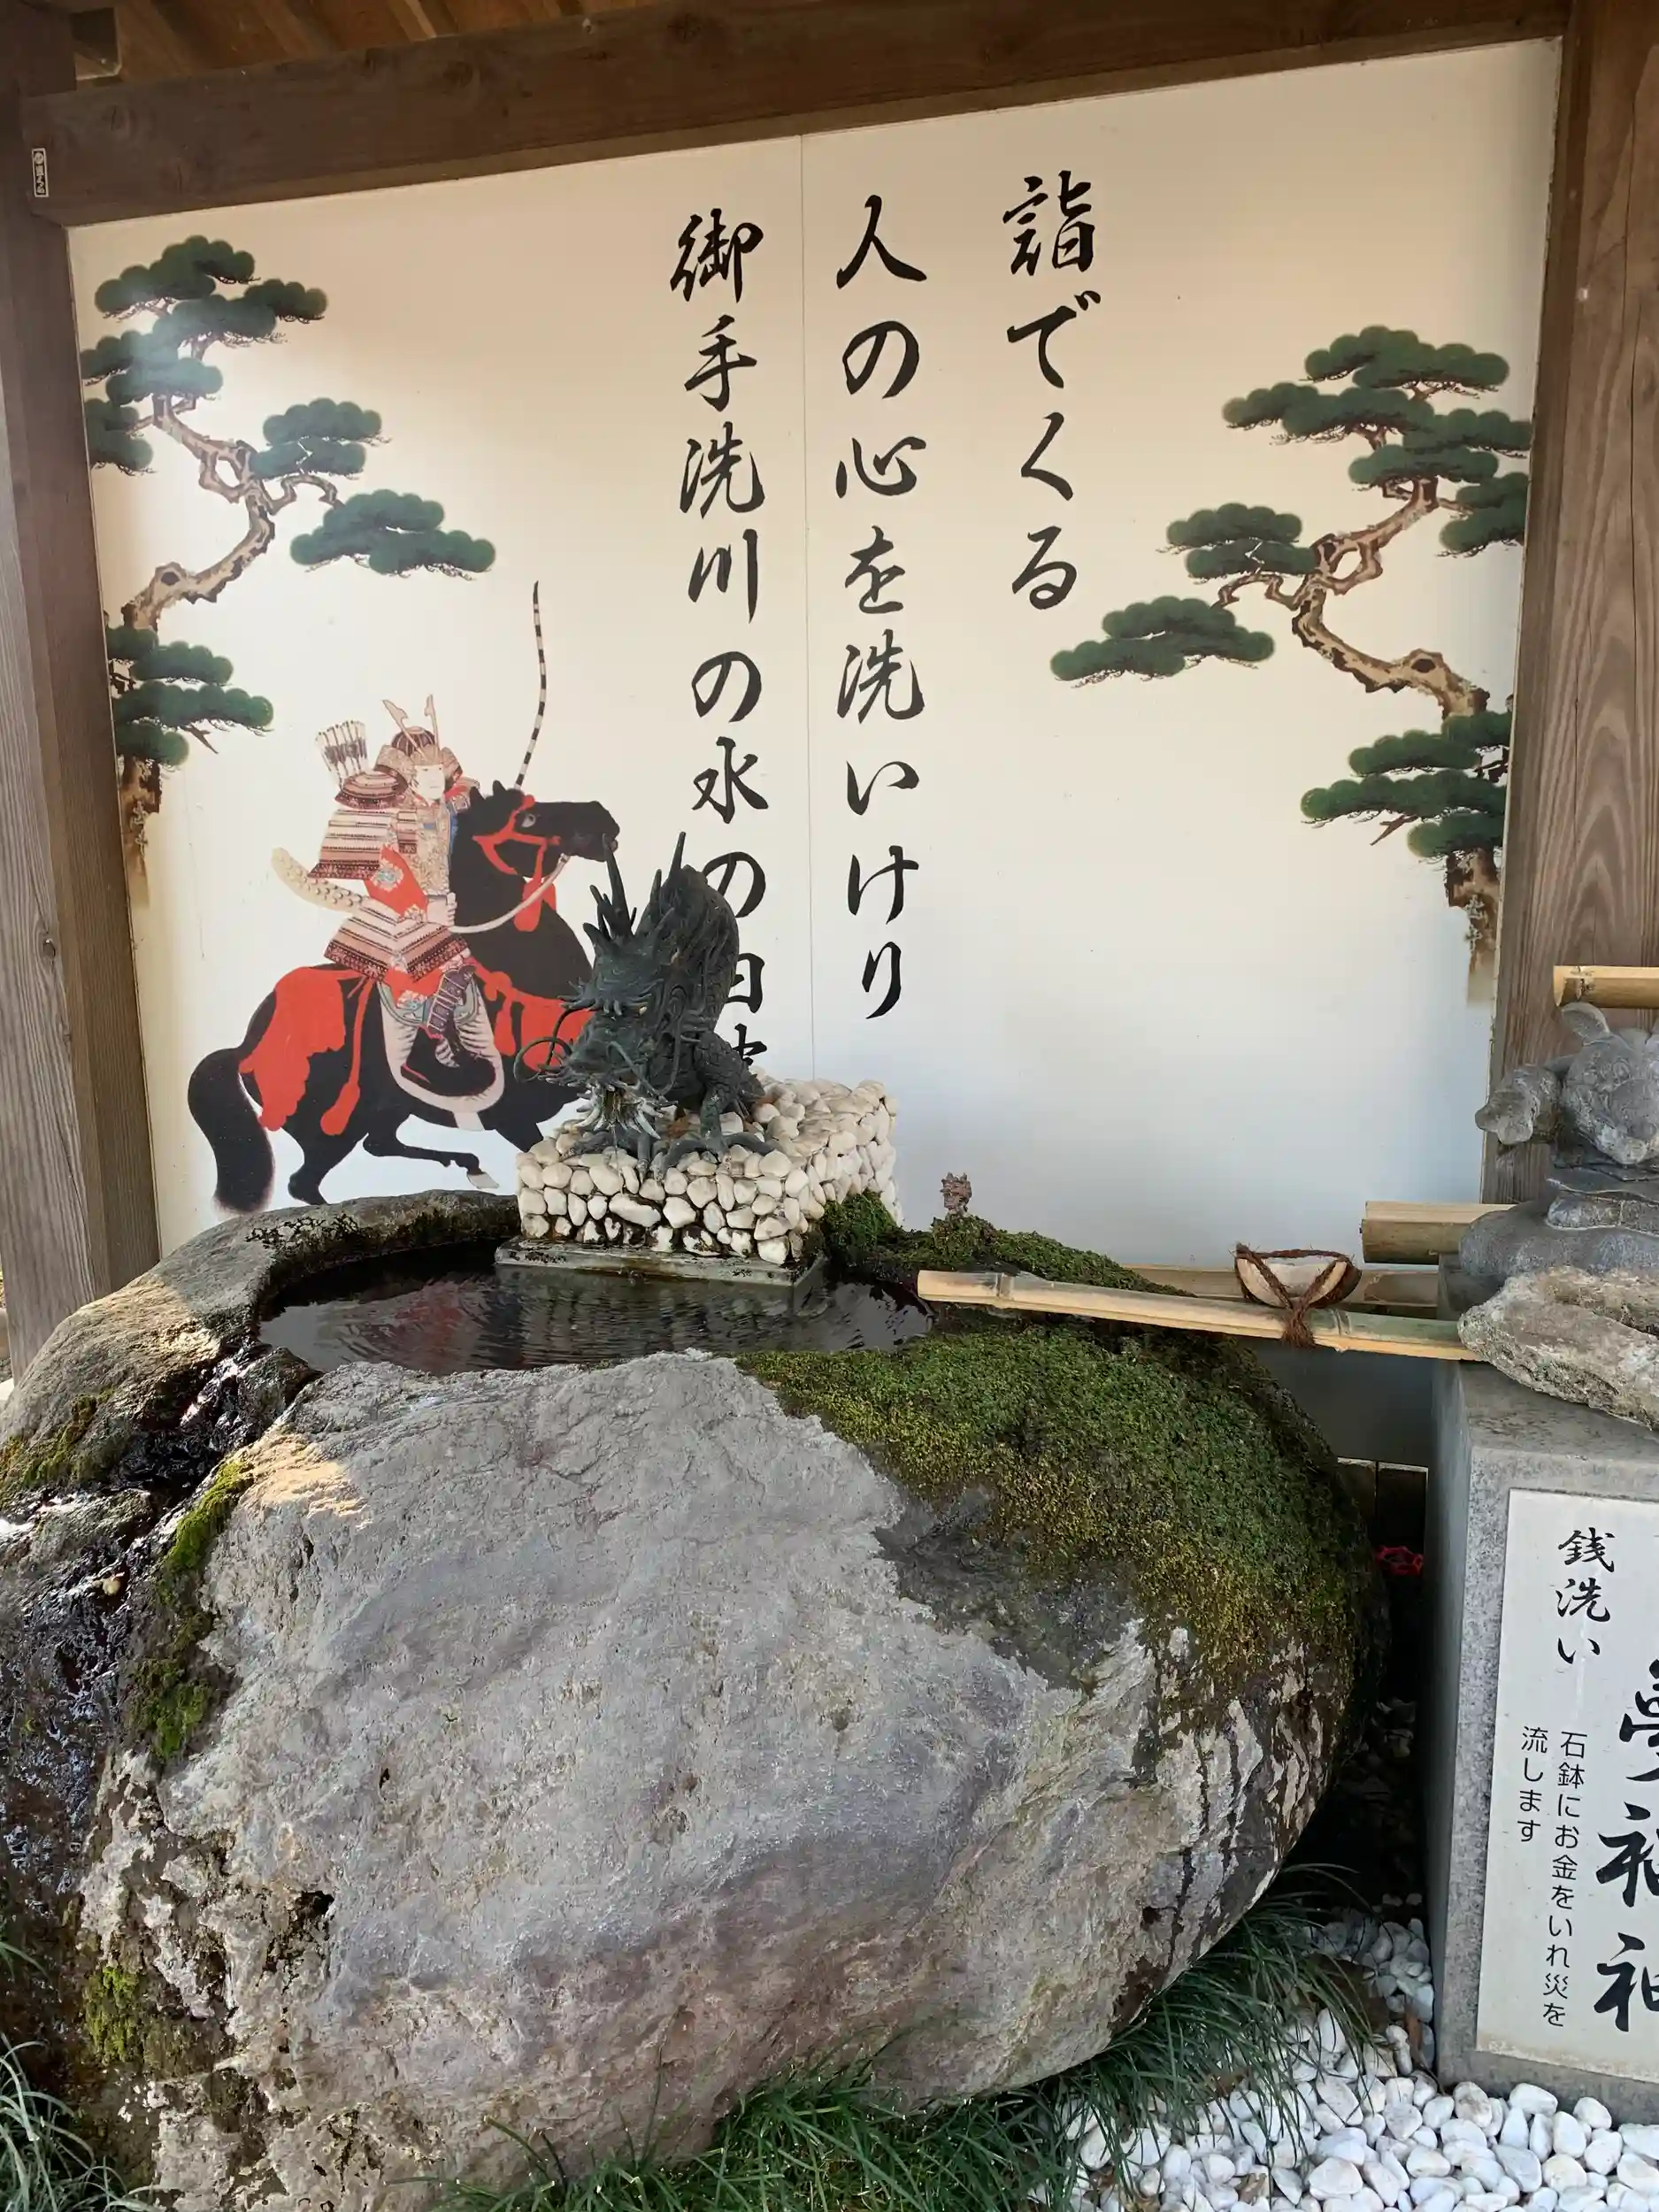 詣でくる
人の心を洗いけり
御手洗川の水の日
銭洗い
石鉢にお金をいれ災を
流します